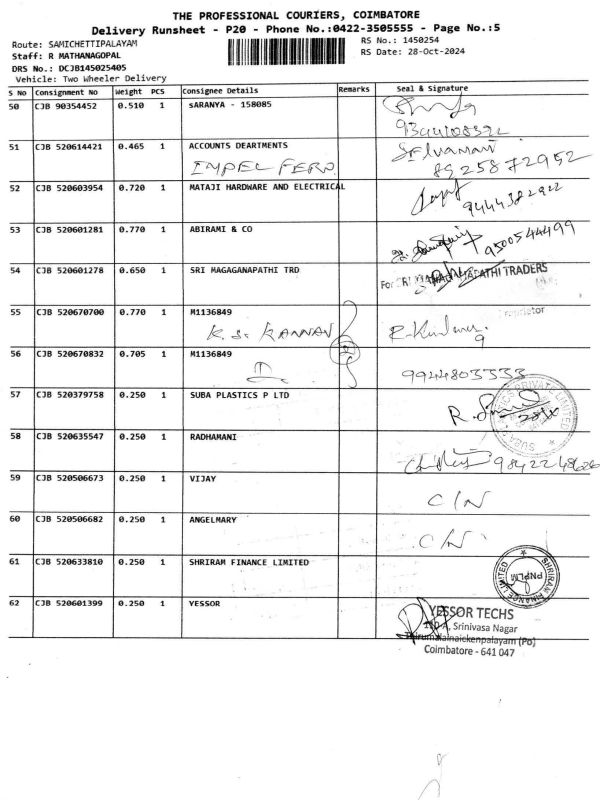 THE PROFESSIONAL COURIERS, COIMBATORE
Delivery Runsheet - P20 - Phone No.:0422-3505555 - Page No.:5
Route: SAMICHETTIPALAYAM
RS No.: 1450254
Staff: R MATHANAGOPAL
RS Date: 28-Oct-2024
DRS No.: DCJB145025405
Vehicle: Two Wheeler Delivery
S No Consignment No Weight PCS Consignee Details Remarks Seal & Signature
50 CJB 90354452 0.510 1 sARANYA - 158085
51 CJB 520614421 0.465 1 ACCOUNTS DEARTMENTS Selvamani
IMPEL FERO 8925872952
52 CJB 520603954 0.720 1 MATAJI HARDWARE AND ELECTRICAL
9444382922
53 CJB 520601281 0.770 1 ABIRAMI & CO
9500544499
54 CJB 520601278 0.650 1 SRI MAGAGANAPATHI TRD
For SRI PATHI TRADERS
Proprietor
55 CJB 520670700 0.770 1 M1136849
K.S. KANNAN
56 CJB 520670832 0.705 1 M1136849
9944803333
57 CJB 520379758 0.250 1 SUBA PLASTICS P LTD
58 CJB 520635547 0.250 1 RADHAMANI
9842248626
59 CJB 520506673 0.250 1 VIJAY
C/N
60 CJB 520506682 0.250 1 ANGELMARY
C/N
61 CJB 520633810 0.250 1 SHRIRAM FINANCE LIMITED
SHRIRAM FINANCE LIMITED
PNPLM
62 CJB 520601399 0.250 1 YESSOR
YESSOR TECHS
Srinivasa Nagar
Thirumalainaickenpalayam (Po)
Coimbatore - 641 047